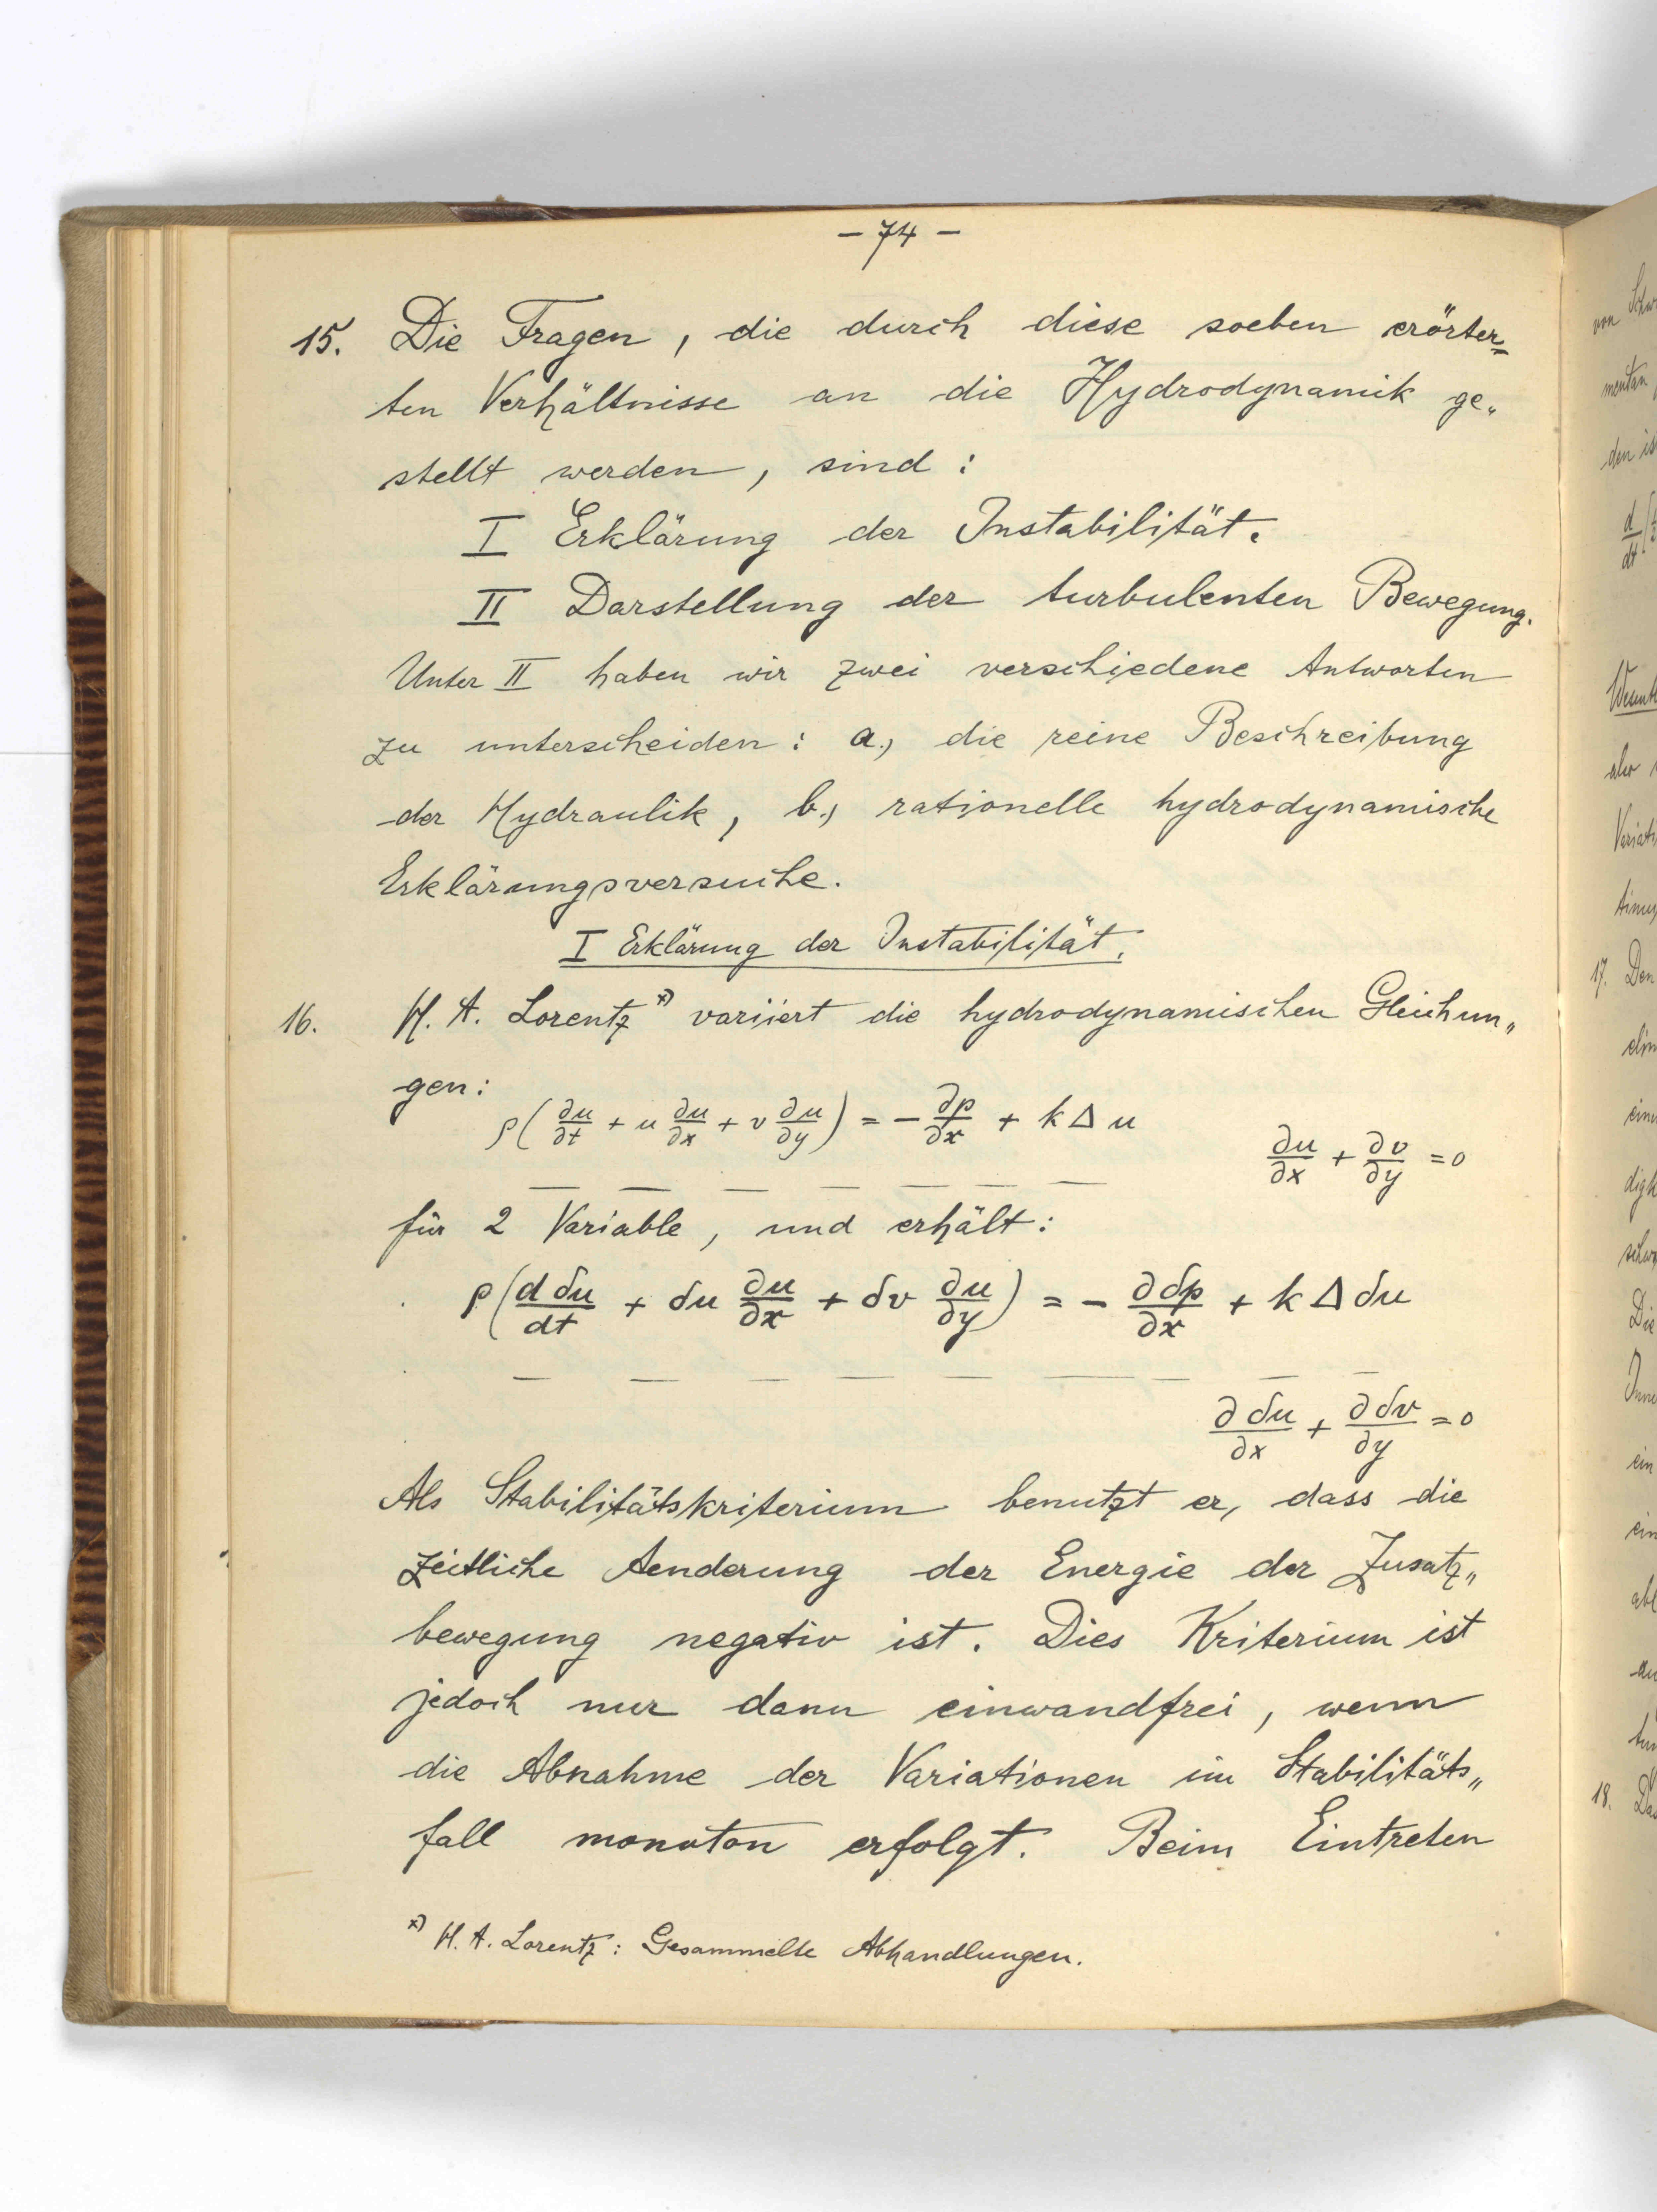 - 74 -
15. Die Fragen, die durch diese soeben erörter=
ten Verhältnisse an die Hydrodynamik ge„
stellt werden, sind:
I Erklärung der Instabilität.
II Darstellung der turbulenten Bewegung.
Unter II haben wir zwei verschiedene Antworten
zu unterscheiden: a.) die reine Beschreibung
der Hydraulik, b.) rationelle hydrodynamische
Erklärungsversuche.
I Erklärung der Instabilität.
16. H. A. Lorentz *) variiert die hydrodynamischen Gleichun„
gen:
ρ(∂u/∂t + u ∂u/∂x + v ∂u/∂y) = - ∂p/∂x + k Δ u
∂u/∂x + ∂v/∂y = 0
— — — — — — —
für 2 Variable, und erhält:
ρ(d δu/dt + δu ∂u/∂x + δv ∂u/∂y) = - ∂ δp/∂x + k Δ δu
— — — — — — — — —
∂ δu/∂x + ∂ δv/∂y = 0
Als Stabilitätskriterium benutzt er, dass die
zeitliche Aenderung der Energie der Zusatz„
bewegung negativ ist. Dies Kriterium ist
jedoch nur dann einwandfrei, wenn
die Abnahme der Variationen im Stabilitäts„
fall monoton erfolgt. Beim Eintreten
*) H. A. Lorentz: Gesammelte Abhandlungen.
von
den
d/dt
17. Den
Die
ein
18.